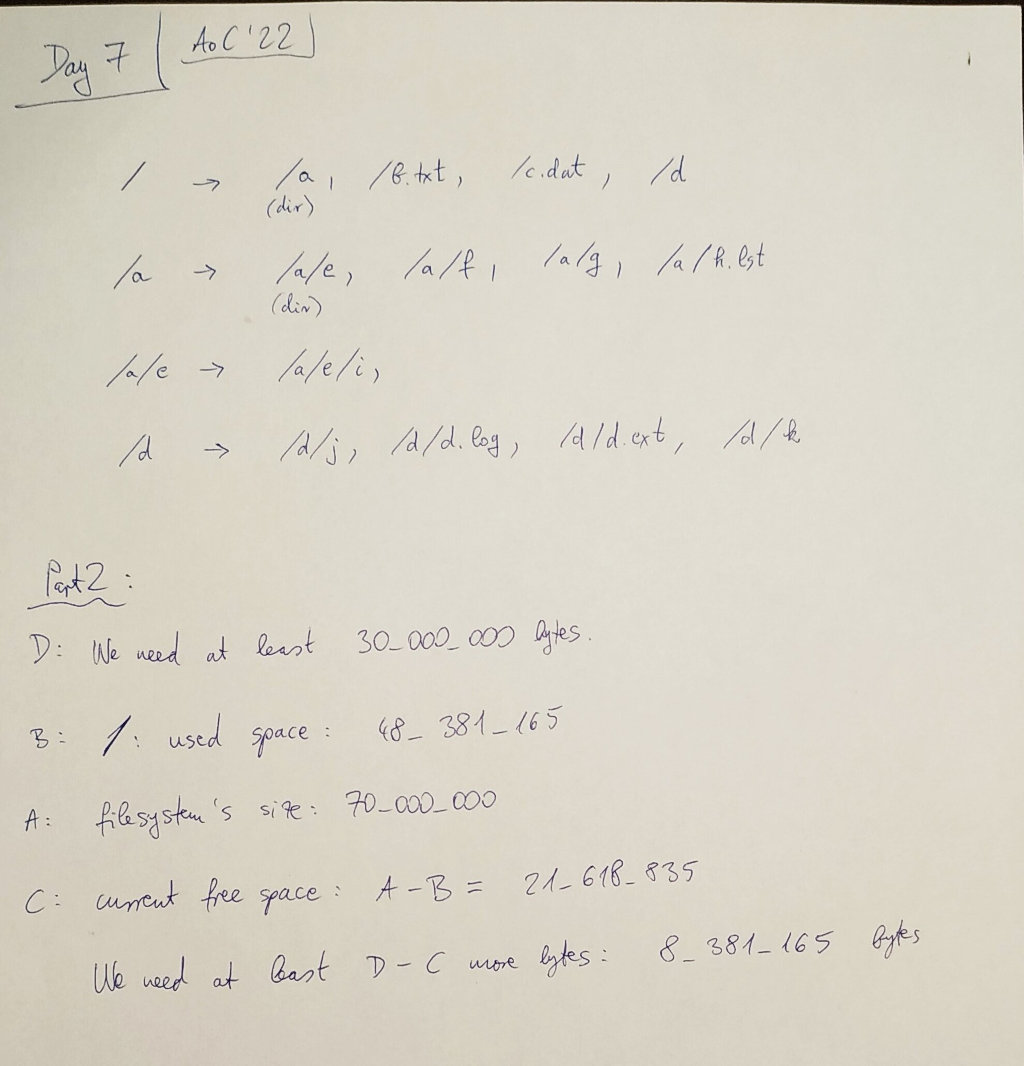 Day 7
AoC '22
/ → /a, /b.txt, /c.dat, /d
(dir)
/a → /a/e, /a/f, /a/g, /a/h.lst
(dir)
/a/e → /a/e/i,
/d → /d/j, /d/d.log, /d/d.ext, /d/k
Part 2:
D: We need at least 30_000_000 bytes.
B: /: used space: 48_381_165
A: filesystem's size: 70_000_000
C: current free space: A - B = 21_618_835
We need at least D - C more bytes: 8_381_165 bytes